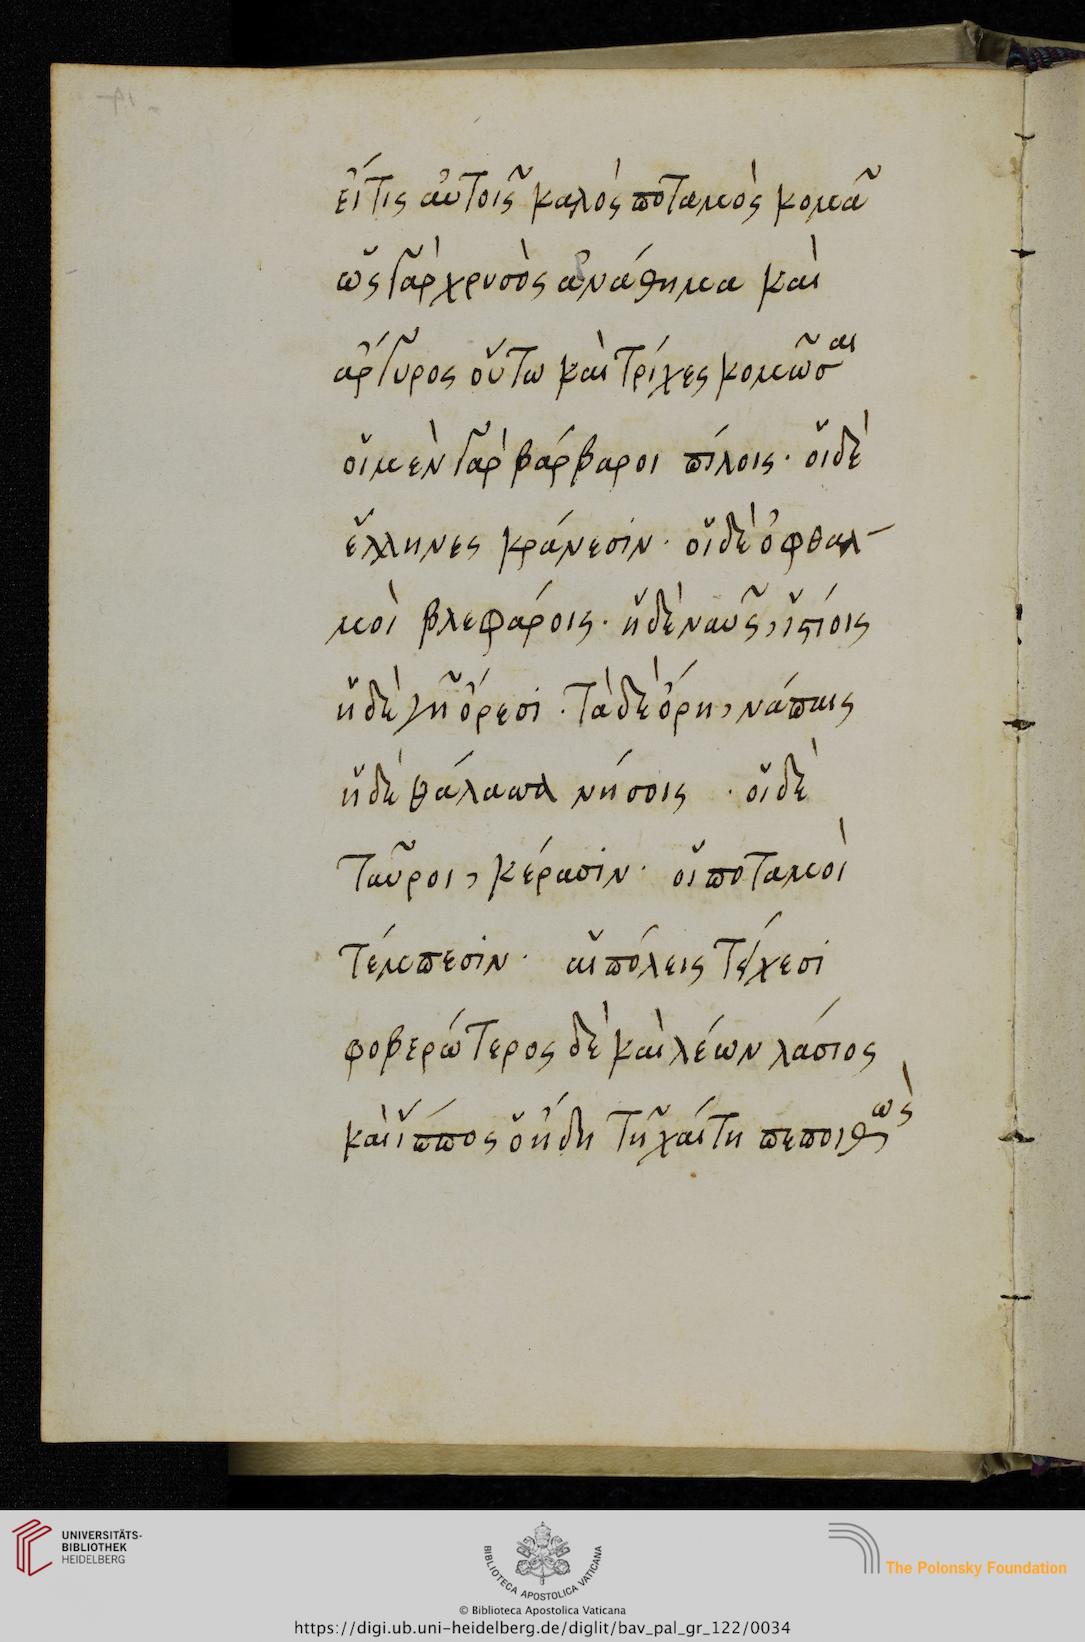 εἴ τις αὐτοῖς καλὸς ποταμὸς κομᾶ
ὡς γὰρ χρυσὸς ἀνάθημα καὶ
ἄργυρος οὕτω καὶ τρίχες κομῶσαι
οἱ μὲν γὰρ βάρβαροι πίλοις· οἱ δὲ
ἕλληνες κράνεσιν· οἱ δὲ ὀφθαλ-
μοὶ βλεφάροις· ἡ δὲ ναῦς, ἱστίοις
ἡ δὲ γῆ ὄρεσι· τὰ δὲ ὄρη, νάπαις
ἡ δὲ θάλαττα νήσοις · οἱ δὲ
ταῦροι, κέρασιν· οἱ ποταμοὶ
τέμπεσιν· αἱ πόλεις τείχεσι
φοβερώτερος δὲ καὶ λέων λάσιος
καὶ ἵππος ὁ ἤδη τῇ χαίτη πεποιθὼς
UNIVERSITÄTS-
BIBLIOTHEK
HEIDELBERG
BIBLIOTECA APOSTOLICA VATICANA
The Polonsky Foundation
© Biblioteca Apostolica Vaticana
https://digi.ub.uni-heidelberg.de/diglit/bav_pal_gr_122/0034